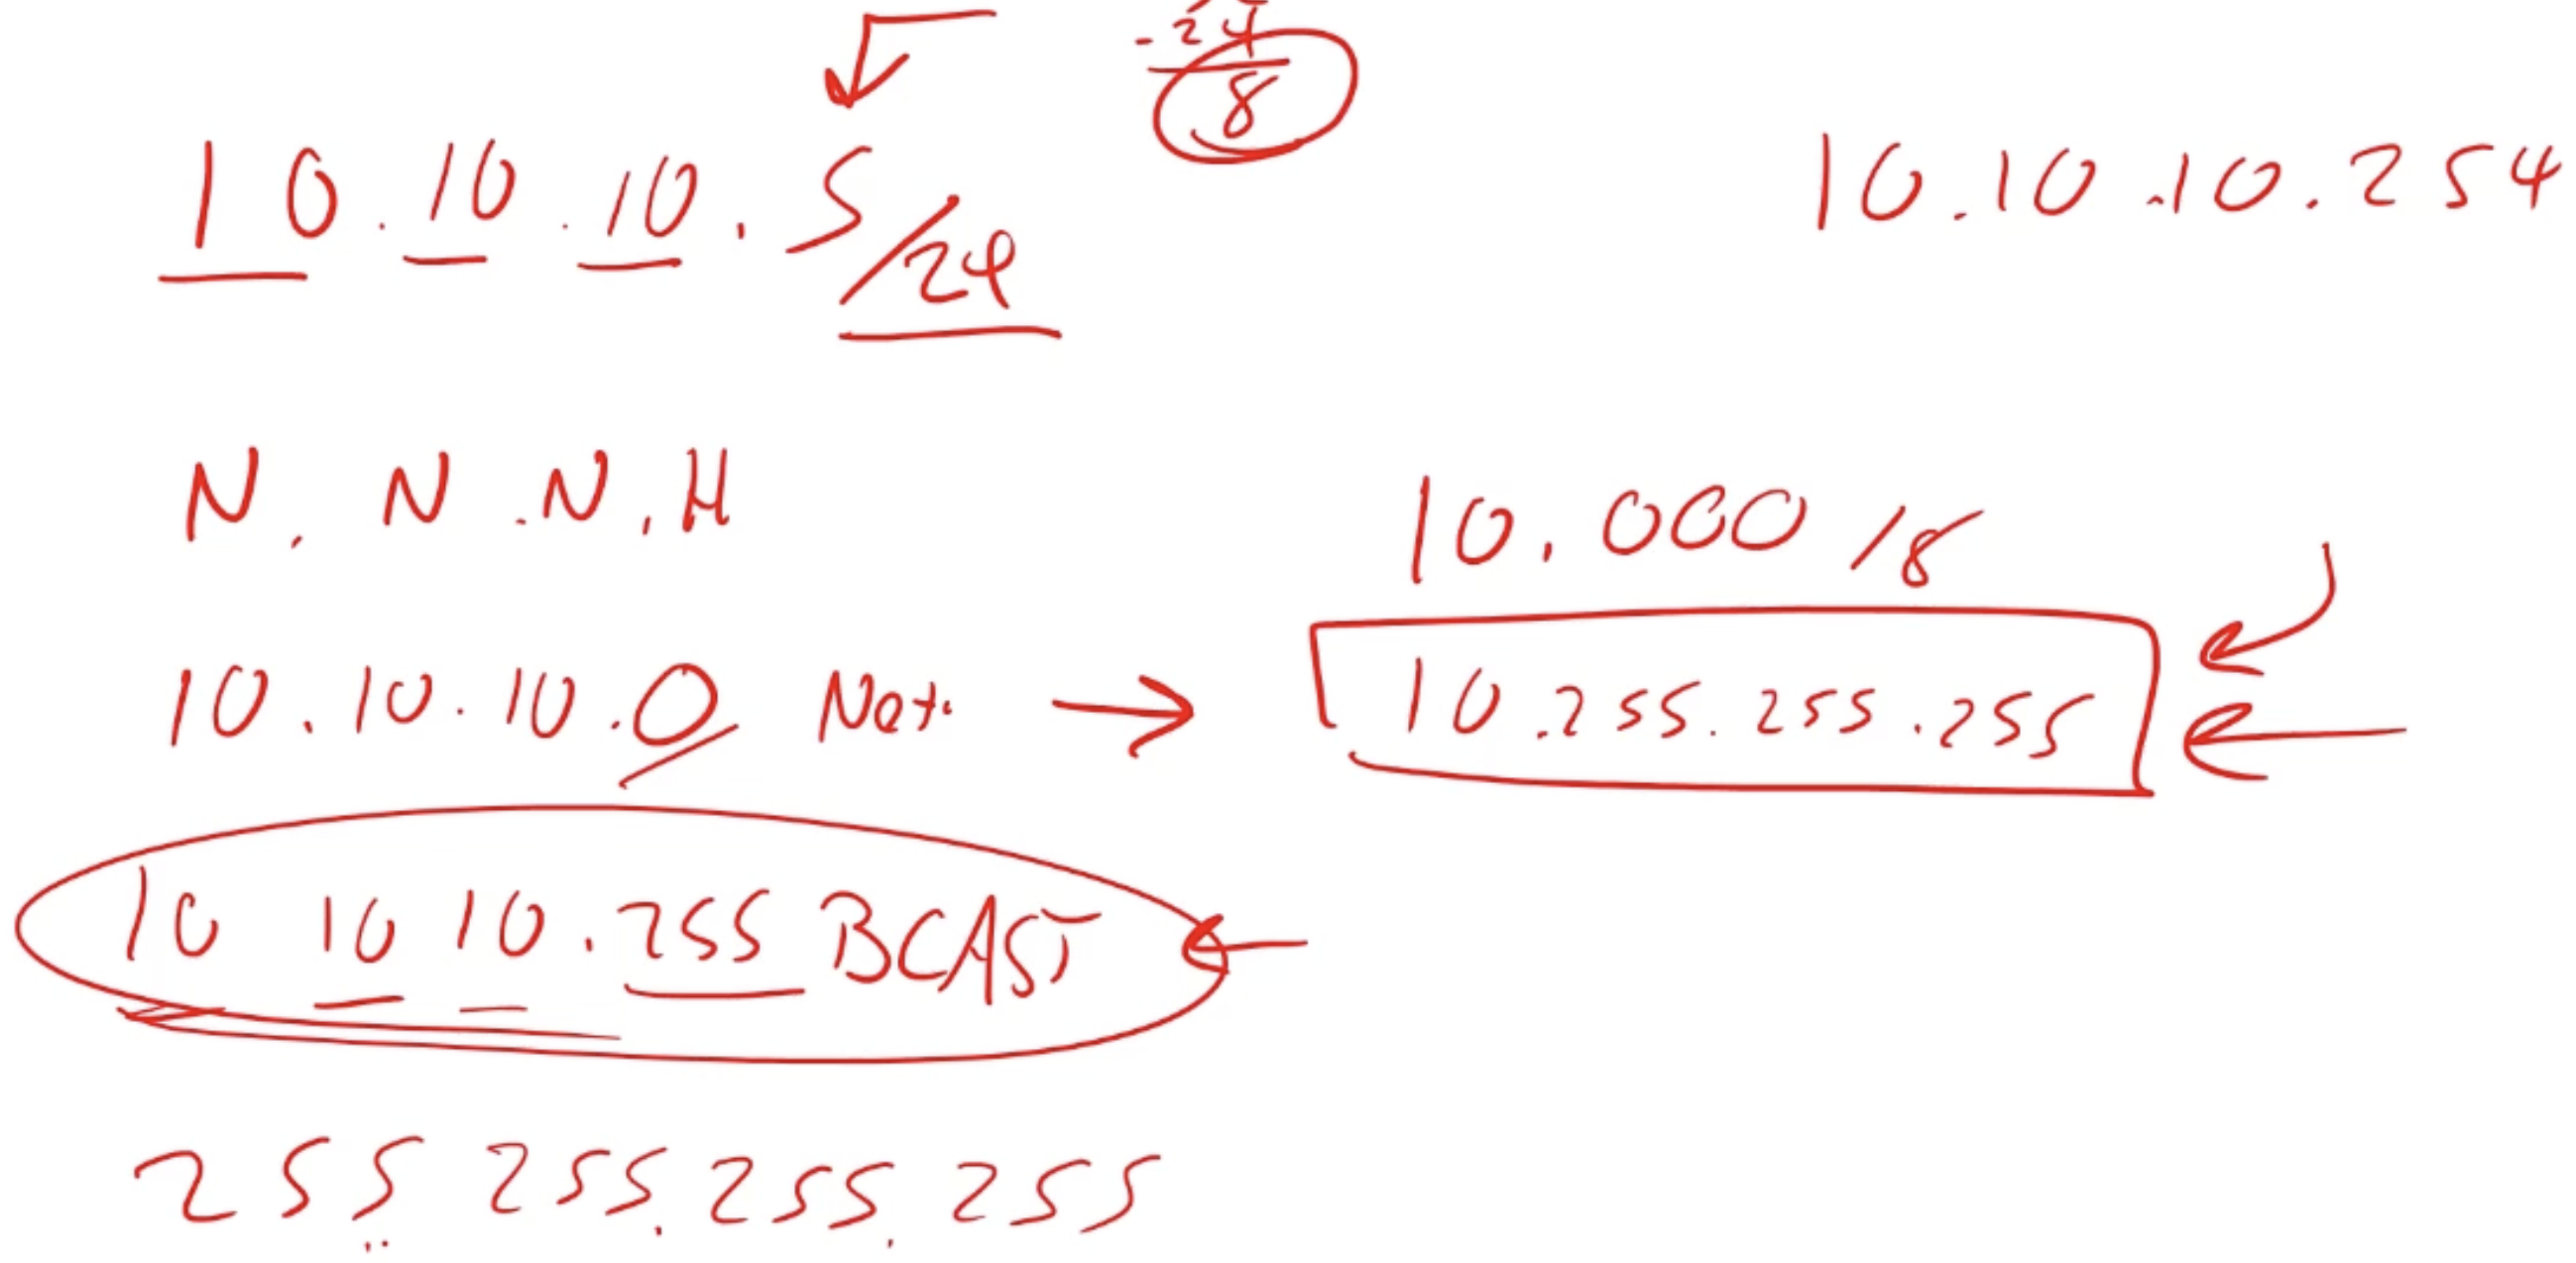 -24
8
10.10.10.5/24
10.10.10.254
N.N.N.H
10.000/8
10.10.10.0 Net.
10.255.255.255
10 10 10.255 BCAST
255 255.255.255